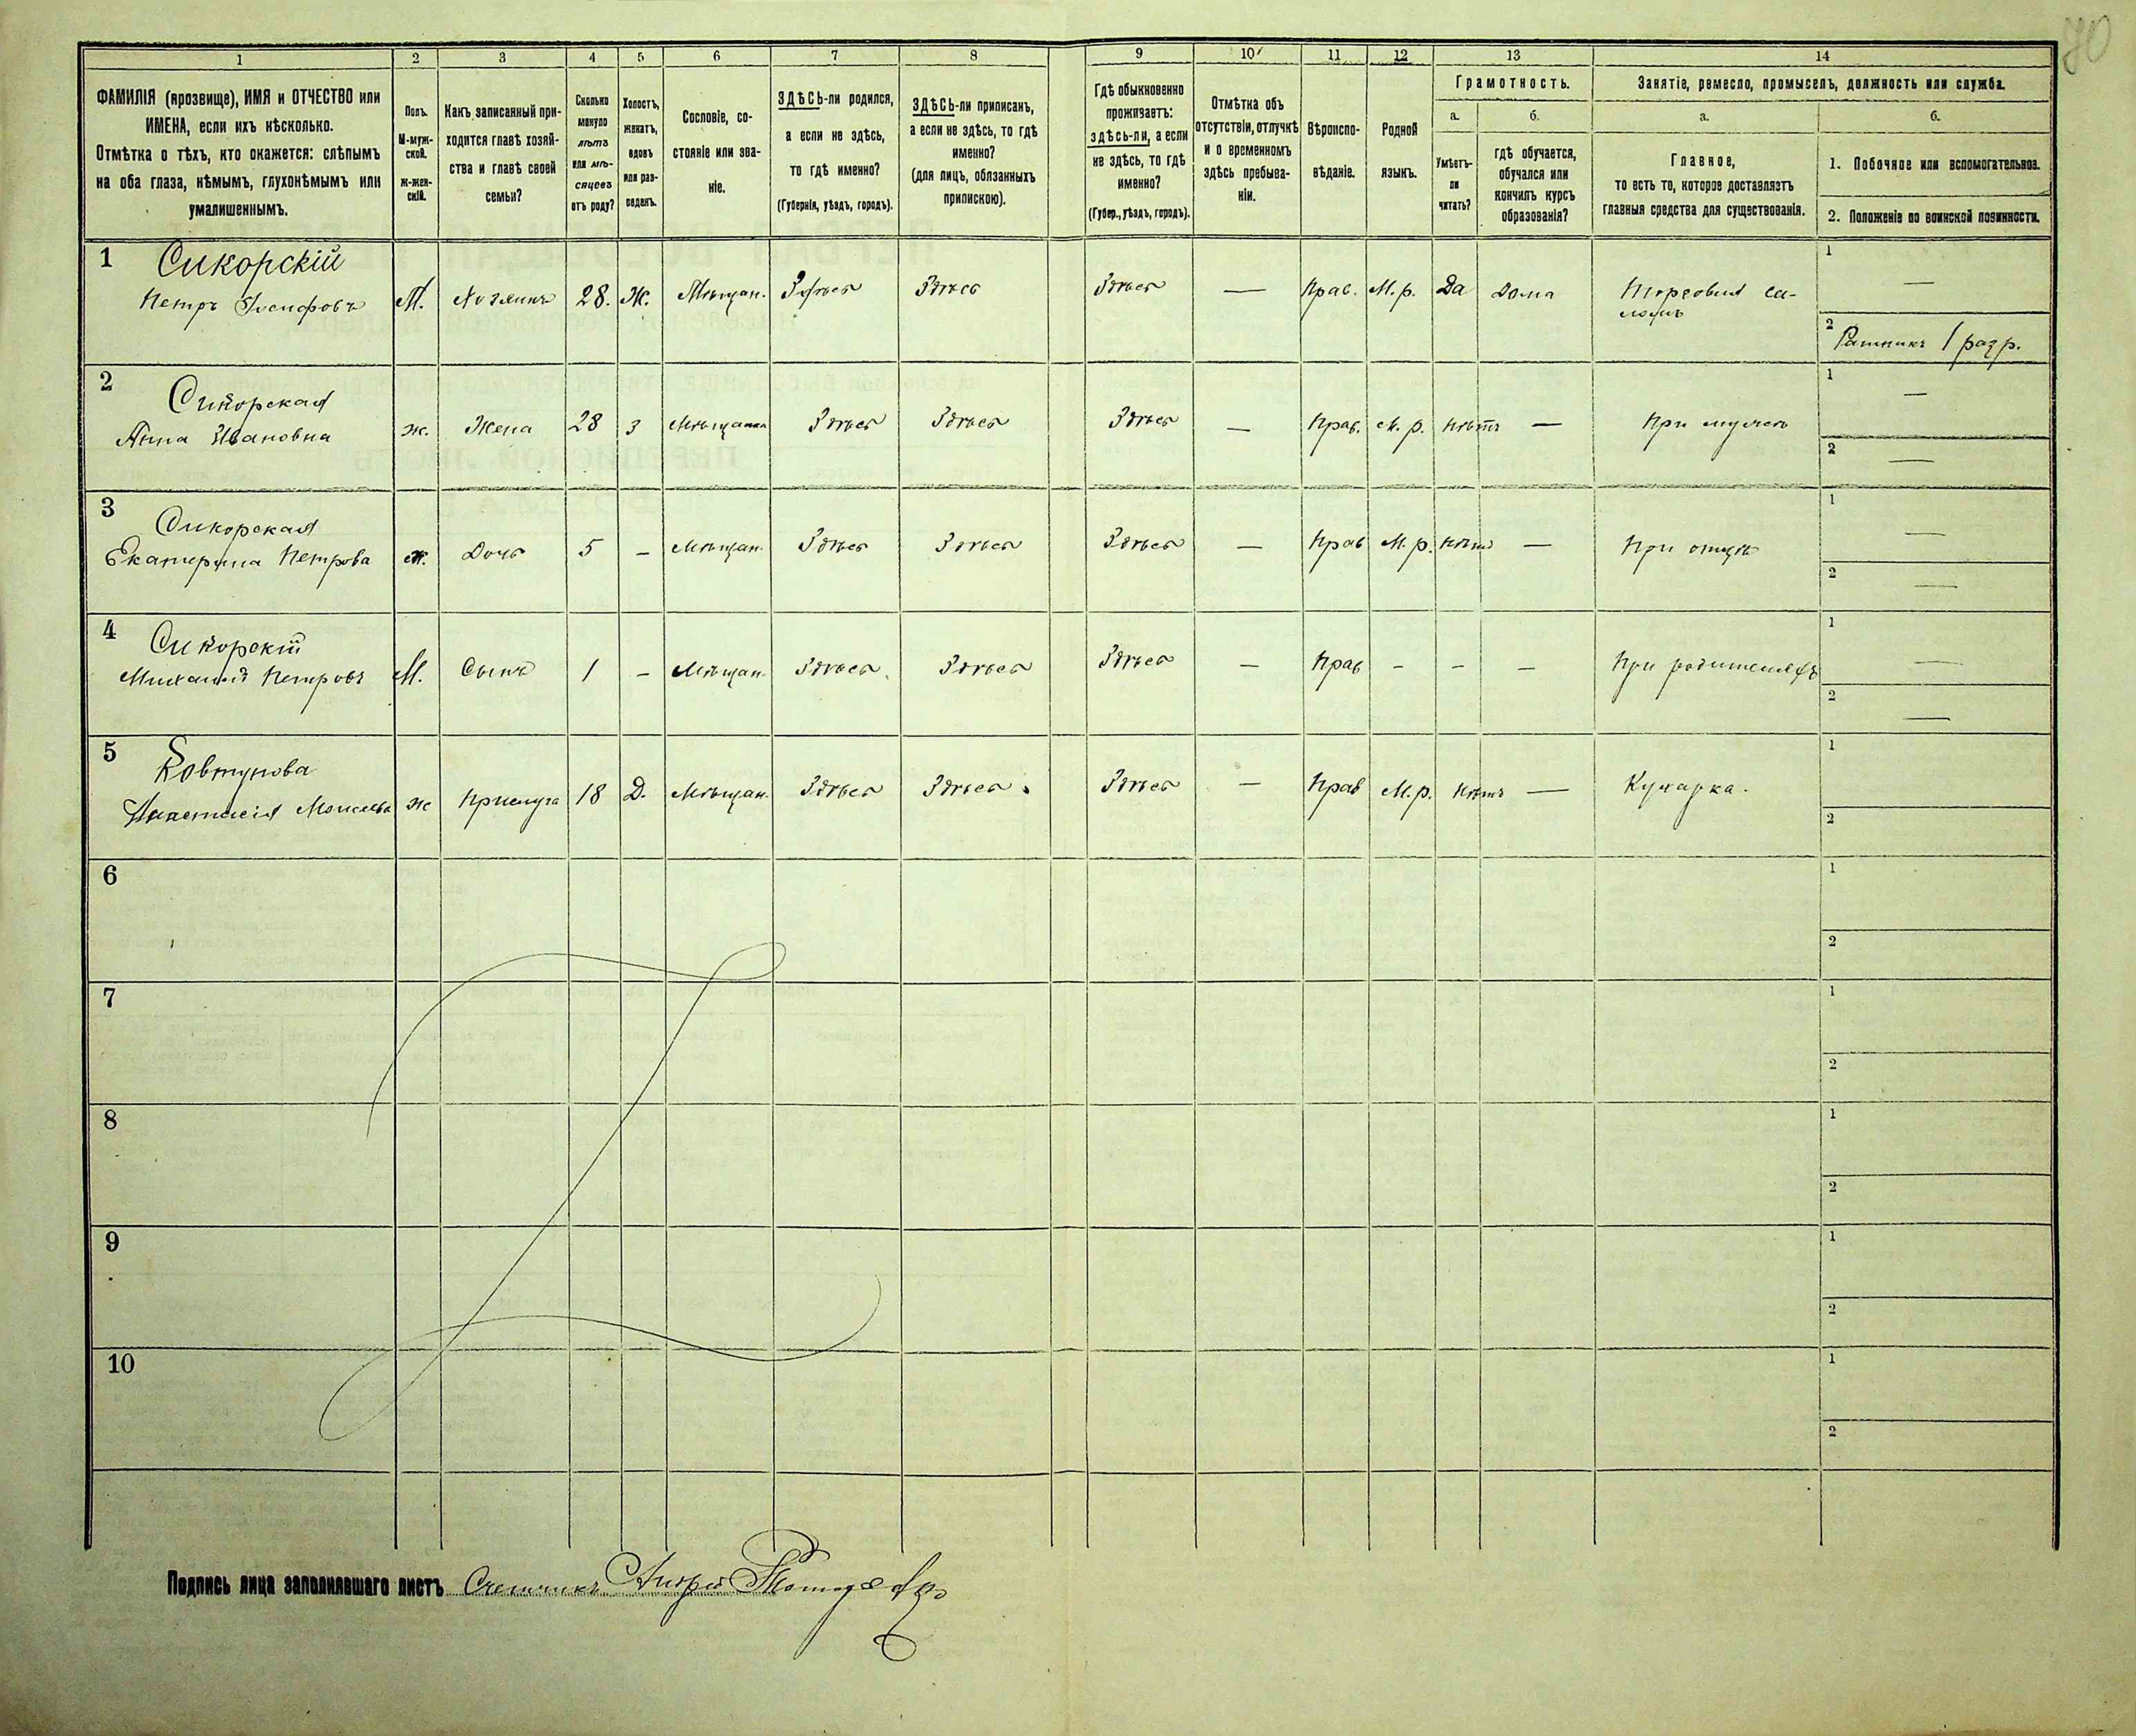 70
1 2 3 4 5 6 7 8 9 10 11 12 13 14
ФАМИЛІЯ (прозвище), ИМЯ и ОТЧЕСТВО или
ИМЕНА, если ихъ нѣсколько.
Отмѣтка о тѣхъ, кто окажется: слѣпымъ
на оба глаза, нѣмымъ, глухонѣмымъ или
умалишеннымъ.
Полъ.
М-муж-
ской.
Ж-жен-
скій.
Какъ записанный при-
ходится главѣ хозяй-
ства и главѣ своей
семьи?
Сколько
минуло
лѣтъ
или мѣ-
сяцевъ
отъ роду?
Холостъ,
женатъ,
вдовъ
или раз-
веденъ.
Сословіе, со-
стояніе или зва-
ніе.
ЗДѢСЬ-ли родился,
а если не здѣсь,
то гдѣ именно?
(Губернія, уѣздъ, городъ).
ЗДѢСЬ-ли приписанъ,
а если не здѣсь, то гдѣ
именно?
(для лицъ, обязанныхъ
припискою).
Гдѣ обыкновенно
проживаетъ:
здѣсь-ли, а если
не здѣсь, то гдѣ
именно?
(Губер., уѣздъ, городъ).
Отмѣтка объ
отсутствіи, отлучкѣ
и о временномъ
здѣсь пребыва-
ніи.
Вѣроиспо-
вѣданіе.
Родной
языкъ.
Грамотность.
а.
Умѣетъ-
ли
читать?
б.
гдѣ обучается,
обучался или
кончилъ курсъ
образованія?
Занятіе, ремесло, промыселъ, должность или служба.
а.
Главное,
то есть то, которое доставляетъ
главныя средства для существованія.
б.
1. Побочное или вспомогательное.
2. Положеніе по воинской повинности.
1 Сикорскій
Петръ Іосифовъ М. Хозяинъ 28. Ж. Мѣщан. Здѣсь Здѣсь Здѣсь — Прав. М.р. Да Дома Торговля са-
ломъ
1 —
2 Ратникъ 1 разр.
2 Сикорская
Анна Ивановна ж. Жена 28 З Мѣщанка Здѣсь Здѣсь Здѣсь — Прав. М.р. Нѣтъ — При мужѣ
1 —
2 —
3 Сикорская
Екатерина Петрова ж. Дочь 5 – Мѣщан. Здѣсь Здѣсь Здѣсь — Прав М.р. Нѣтъ — При отцѣ
1 —
2 —
4 Сикорскій
Михаилъ Петровъ М. Сынъ 1 – Мѣщан. Здѣсь. Здѣсь Здѣсь — Прав – – – При родителяхъ
1 —
2 —
5 Ковтунова
Анастасія Моисеева ж Прислуга 18 Д. Мѣщан. Здѣсь Здѣсь. Здѣсь — Прав М.р. Нѣтъ — Кухарка.
1
2
6
1
2
7
1
2
8
1
2
9
1
2
10
1
2
Подпись лица заполнявшаго листъ Счетчикъ Андрей